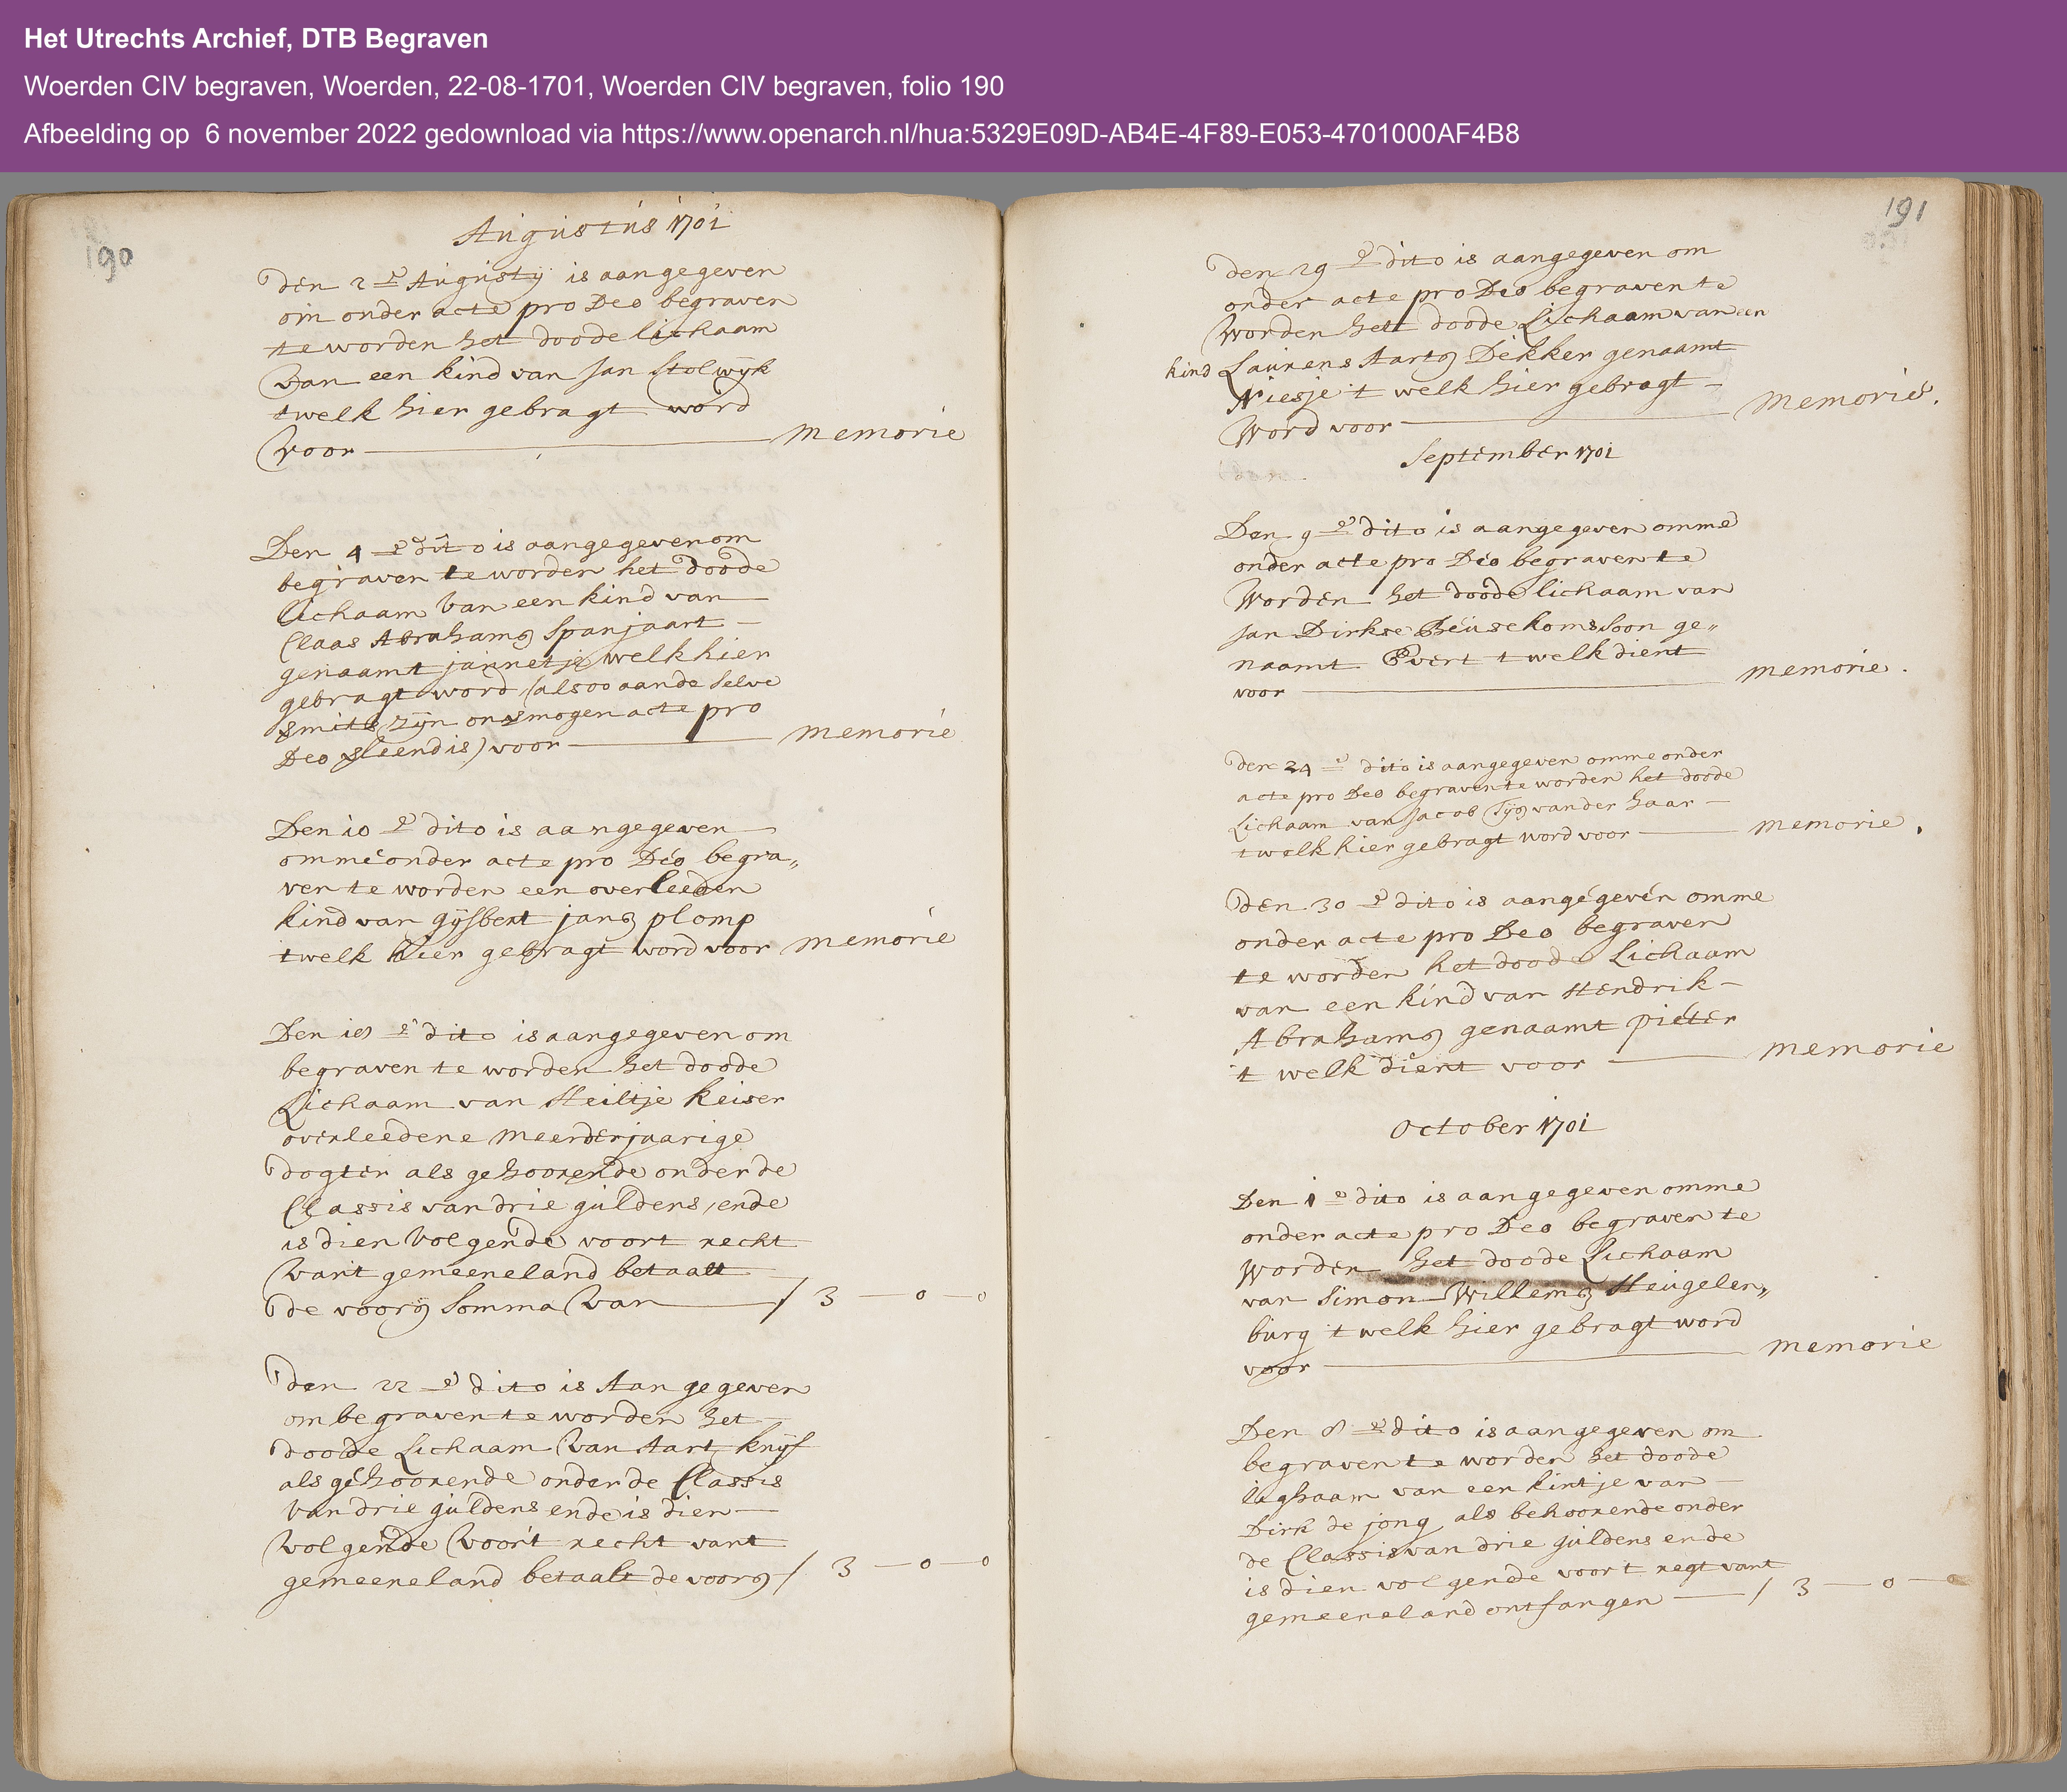 Het Utrechts Archief, DTB Begraven
Woerden CIV begraven, Woerden, 22-08-1701, Woerden CIV begraven, folio 190
Afbeelding op 6 november 2022 gedownload via https://www.openarch.nl/hua:5329E09D-AB4E-4F89-E053-4701000AF4B8
190
Augustus 1701
Den 2e Augusty is aangegeven
om onder acte pro Deo begraven
te worden het doode lichaam
van een kind van Jan Stolwijk
twelk hier gebragt word
voor memorie
Den 4e dito is aangegeven om
begraven te worden het doode
lichaam van een kind van
Claas Abrahams Spanjaart
genaamt jannetje welk hier
gebragt word (alsoo aan de selve
mits zijn onvermogen acte pro
Deo verleend is) voor memorie
Den 10e dito is aangegeven
omme onder acte pro Deo begra„
ven te worden een overleeden
kind van gijsbert jans plomp
twelk hier gebragt word voor memorie
Den 18e dito is aangegeven om
begraven te worden het doode
Lichaam van Heiltje Keiser
overleedene meerderjaarige
dogter als gehoorende onder de
Classis van drie guldens, ende
is dien volgende voort recht
vant gemeeneland betaalt
de voors somma van / 3 — 0 — 0
Den 22e dito is Aangegeven
om begraven te worden het
doode Lichaam van Aart Knijf
als gehoorende onder de Classis
van drie guldens ende is dien
volgende voort recht vant
gemeeneland betaalt de voors / 3 — 0 — 0
191
Den 29e dito is aangegeven om
onder acte pro Deo begraven te
worden het doode Lichaam van een
kind Laurens Aarts Dekker genaamt
Niesje 't welk hier gebragt
word voor memorie.
September 1701
Den 9e dito is aangegeven omme
onder acte pro Deo begraven te
worden het doode lichaam van
Jan Dirkse Beusekoms soon ge„
naamt Evert twelk dient
voor memorie.
Den 24e dito is aangegeven omme onder
acte pro Deo begraven te worden het doode
Lichaam van Jacob Tijs van der Haar
twelk hier gebragt word voor memorie.
Den 30e dito is aangegeven omme
onder acte pro Deo begraven
te worden het doode Lichaam
van een kind van Hendrik
Abrahams genaamt pieter
't welk dient voor memorie
October 1701
Den 1e dito is aangegeven omme
onder acte pro Deo begraven te
worden het doode Lichaam
van Simon Willems Heugelen„
burg 't welk hier gebragt word
voor memorie
Den 8e dito is aangegeven om
begraven te worden het doode
lighaam van een kintje van
Dirk de jong als behoorende onder
de Classis van drie guldens ende
is dien volgende voort regt vant
gemeeneland ontfangen / 3 — 0 — 0